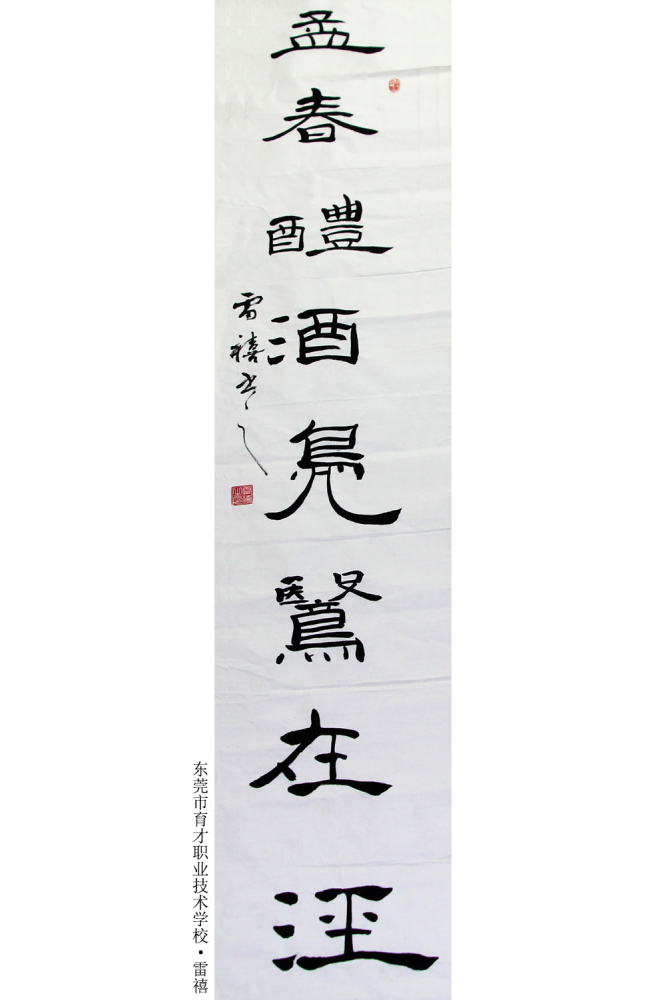 孟春醴酒鳧鷖在涇
雷禧书之
东莞市育才职业技术学校·雷禧